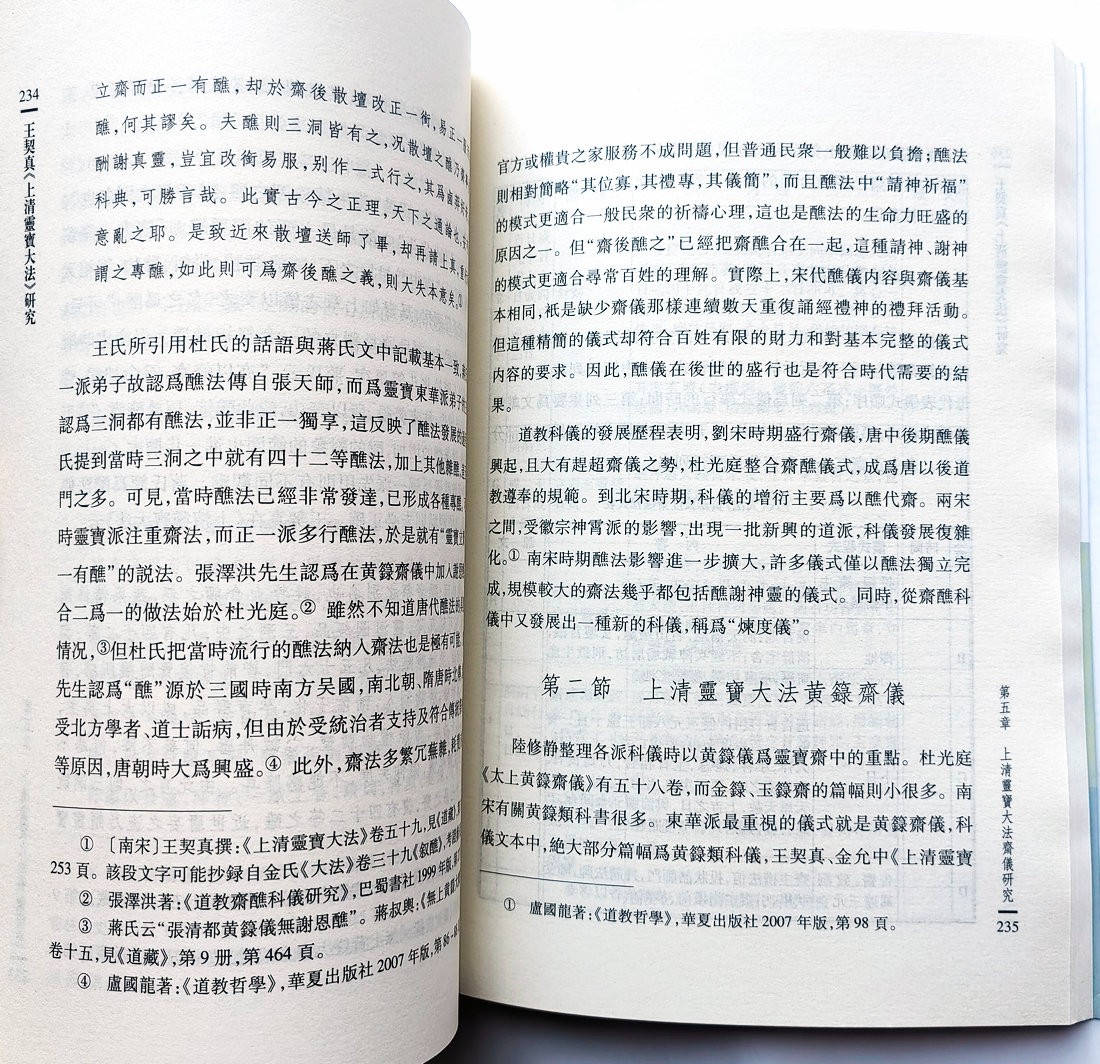 234
王契真《上清靈寶大法》研究
立齋而正一有醮，却於齋後散壇改正一銜，易正一
醮，何其謬矣。夫醮則三洞皆有之，况散壇之醮乃
酬謝真靈，豈宜改銜易服，别作一式行之，其爲鹵莽
科典，可勝言哉。此實古今之正理，天下之通論也，
意亂之耶。是致近來散壇送師了畢，却再請上真，重
謂之專醮，如此則可爲齋後醮之義，則大失本意矣。①
王氏所引用杜氏的話語與蔣氏文中記載基本一致，
一派弟子故認爲醮法傳自張天師，而爲靈寶東華派弟子
認爲三洞都有醮法，並非正一獨享，這反映了醮法發展的
氏提到當時三洞之中就有四十二等醮法，加上其他雜醮，
門之多。可見，當時醮法已經非常發達，已形成各種專醮，
時靈寶派注重齋法，而正一派多行醮法，於是就有“靈寶立
一有醮”的説法。張澤洪先生認爲在黄籙齋儀中加入謝恩
合二爲一的做法始於杜光庭。② 雖然不知道唐代醮法
情况，③但杜氏把當時流行的醮法納入齋法也是極有可能
先生認爲“醮”源於三國時南方吴國，南北朝、隋唐時北
受北方學者、道士詬病，但由於受統治者支持及符合傳統
等原因，唐朝時大爲興盛。④ 此外，齋法多繁冗蕪雜，耗費
① 〔南宋〕王契真撰：《上清靈寶大法》卷五十九，見《道藏》，
253 頁。該段文字可能抄録自金氏《大法》卷三十九《叙醮》，
② 張澤洪著：《道教齋醮科儀研究》，巴蜀書社 1999 年版，
③ 蔣氏云“張清都黄籙儀無謝恩醮”。蔣叔輿：《無上黄籙大
卷十五，見《道藏》，第 9 册，第 464 頁。
④ 盧國龍著：《道教哲學》，華夏出版社 2007 年版，第 86
官方或權貴之家服務不成問題，但普通民衆一般難以負擔；醮法
則相對簡略“其位寡，其禮專，其儀簡”，而且醮法中“請神祈福”
的模式更適合一般民衆的祈禱心理，這也是醮法的生命力旺盛的
原因之一。但“齋後醮之”已經把齋醮合在一起，這種請神、謝神
的模式更適合尋常百姓的理解。實際上，宋代醮儀内容與齋儀基
本相同，衹是缺少齋儀那樣連續數天重復誦經禮神的禮拜活動。
但這種精簡的儀式却符合百姓有限的財力和對基本完整的儀式
内容的要求。因此，醮儀在後世的盛行也是符合時代需要的結
果。
道教科儀的發展歷程表明，劉宋時期盛行齋儀，唐中後期醮儀
興起，且大有趕超齋儀之勢，杜光庭整合齋醮儀式，成爲唐以後道
教遵奉的規範。到北宋時期，科儀的增衍主要爲以醮代齋。兩宋
之間，受徽宗神霄派的影響，出現一批新興的道派，科儀發展復雜
化。① 南宋時期醮法影響進一步擴大，許多儀式僅以醮法獨立完
成，規模較大的齋法幾乎都包括醮謝神靈的儀式。同時，從齋醮科
儀中又發展出一種新的科儀，稱爲“煉度儀”。
第二節　上清靈寶大法黄籙齋儀
陸修静整理各派科儀時以黄籙儀爲靈寶齋中的重點。杜光庭
《太上黄籙齋儀》有五十八卷，而金籙、玉籙齋的篇幅則小很多。南
宋有關黄籙類科書很多。東華派最重視的儀式就是黄籙齋儀，科
儀文本中，絶大部分篇幅爲黄籙類科儀，王契真、金允中《上清靈寶
① 盧國龍著：《道教哲學》，華夏出版社 2007 年版，第 98 頁。
第五章　上清靈寶大法齋儀研究
235